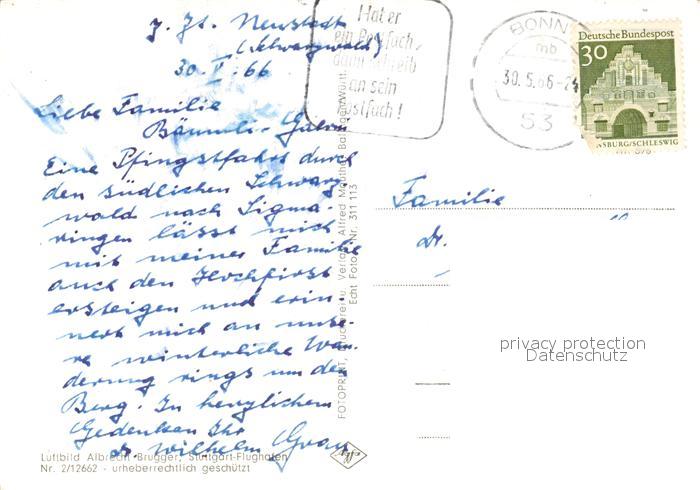 z. Zt. Neustadt
(Schwarzwald)
30. V. 66
Liebe Familie
Eine Pfingstfahrt durch
den südlichen Schwarz
wald nach Sigma-
ringen lässt mich
mit meiner Familie
auch den Hochfirst
ersteigen und erin-
nert mich an unse-
re winterliche Wan-
derung rings um den
Berg. In herzlichem
Gedenken Ihr
Dr. Wilhelm
Luftbild Albrecht Brugger, Stuttgart-Flughafen
Nr. 2/12662 - urheberrechtlich geschützt
FOTOPRINT, Druckerei u. Verlag Alfred Mauthe, Balingen/Württ.
Echt Foto Nr. 311 113
Agfa
Hat er
ein Postfach,
dann schreib
an sein
Postfach!
BONN
mb
30.5.66-24
53
Deutsche Bundespost
30
NSBURG/SCHLESWIG
Familie
Dr.
privacy protection
Datenschutz